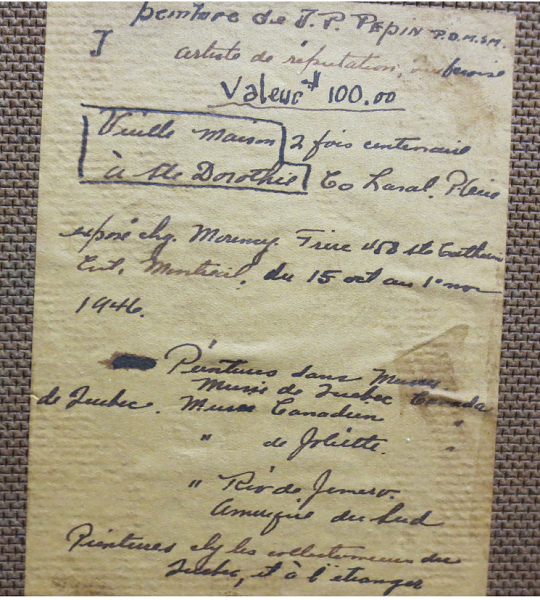 peinture de J. P. PEPIN P.D.M.S.M.
artiste de réputation,
Valeur $ 100.00
Vieille maison 2 fois centenaire
à Ste Dorothie Co Laval.
exposé chz. Morency Frere 458 Ste Catherine
Est, Montreal, du 15 oct au 1e nov
1946.
Peintures dans Musées
Musée de Quebec Canada
de Quebec. Musee Canadien "
" de Joliette. "
" Rio de Janero.
Amerique du Sud
Peintures chz les collectionneurs du
Quebec, et à l'étranger